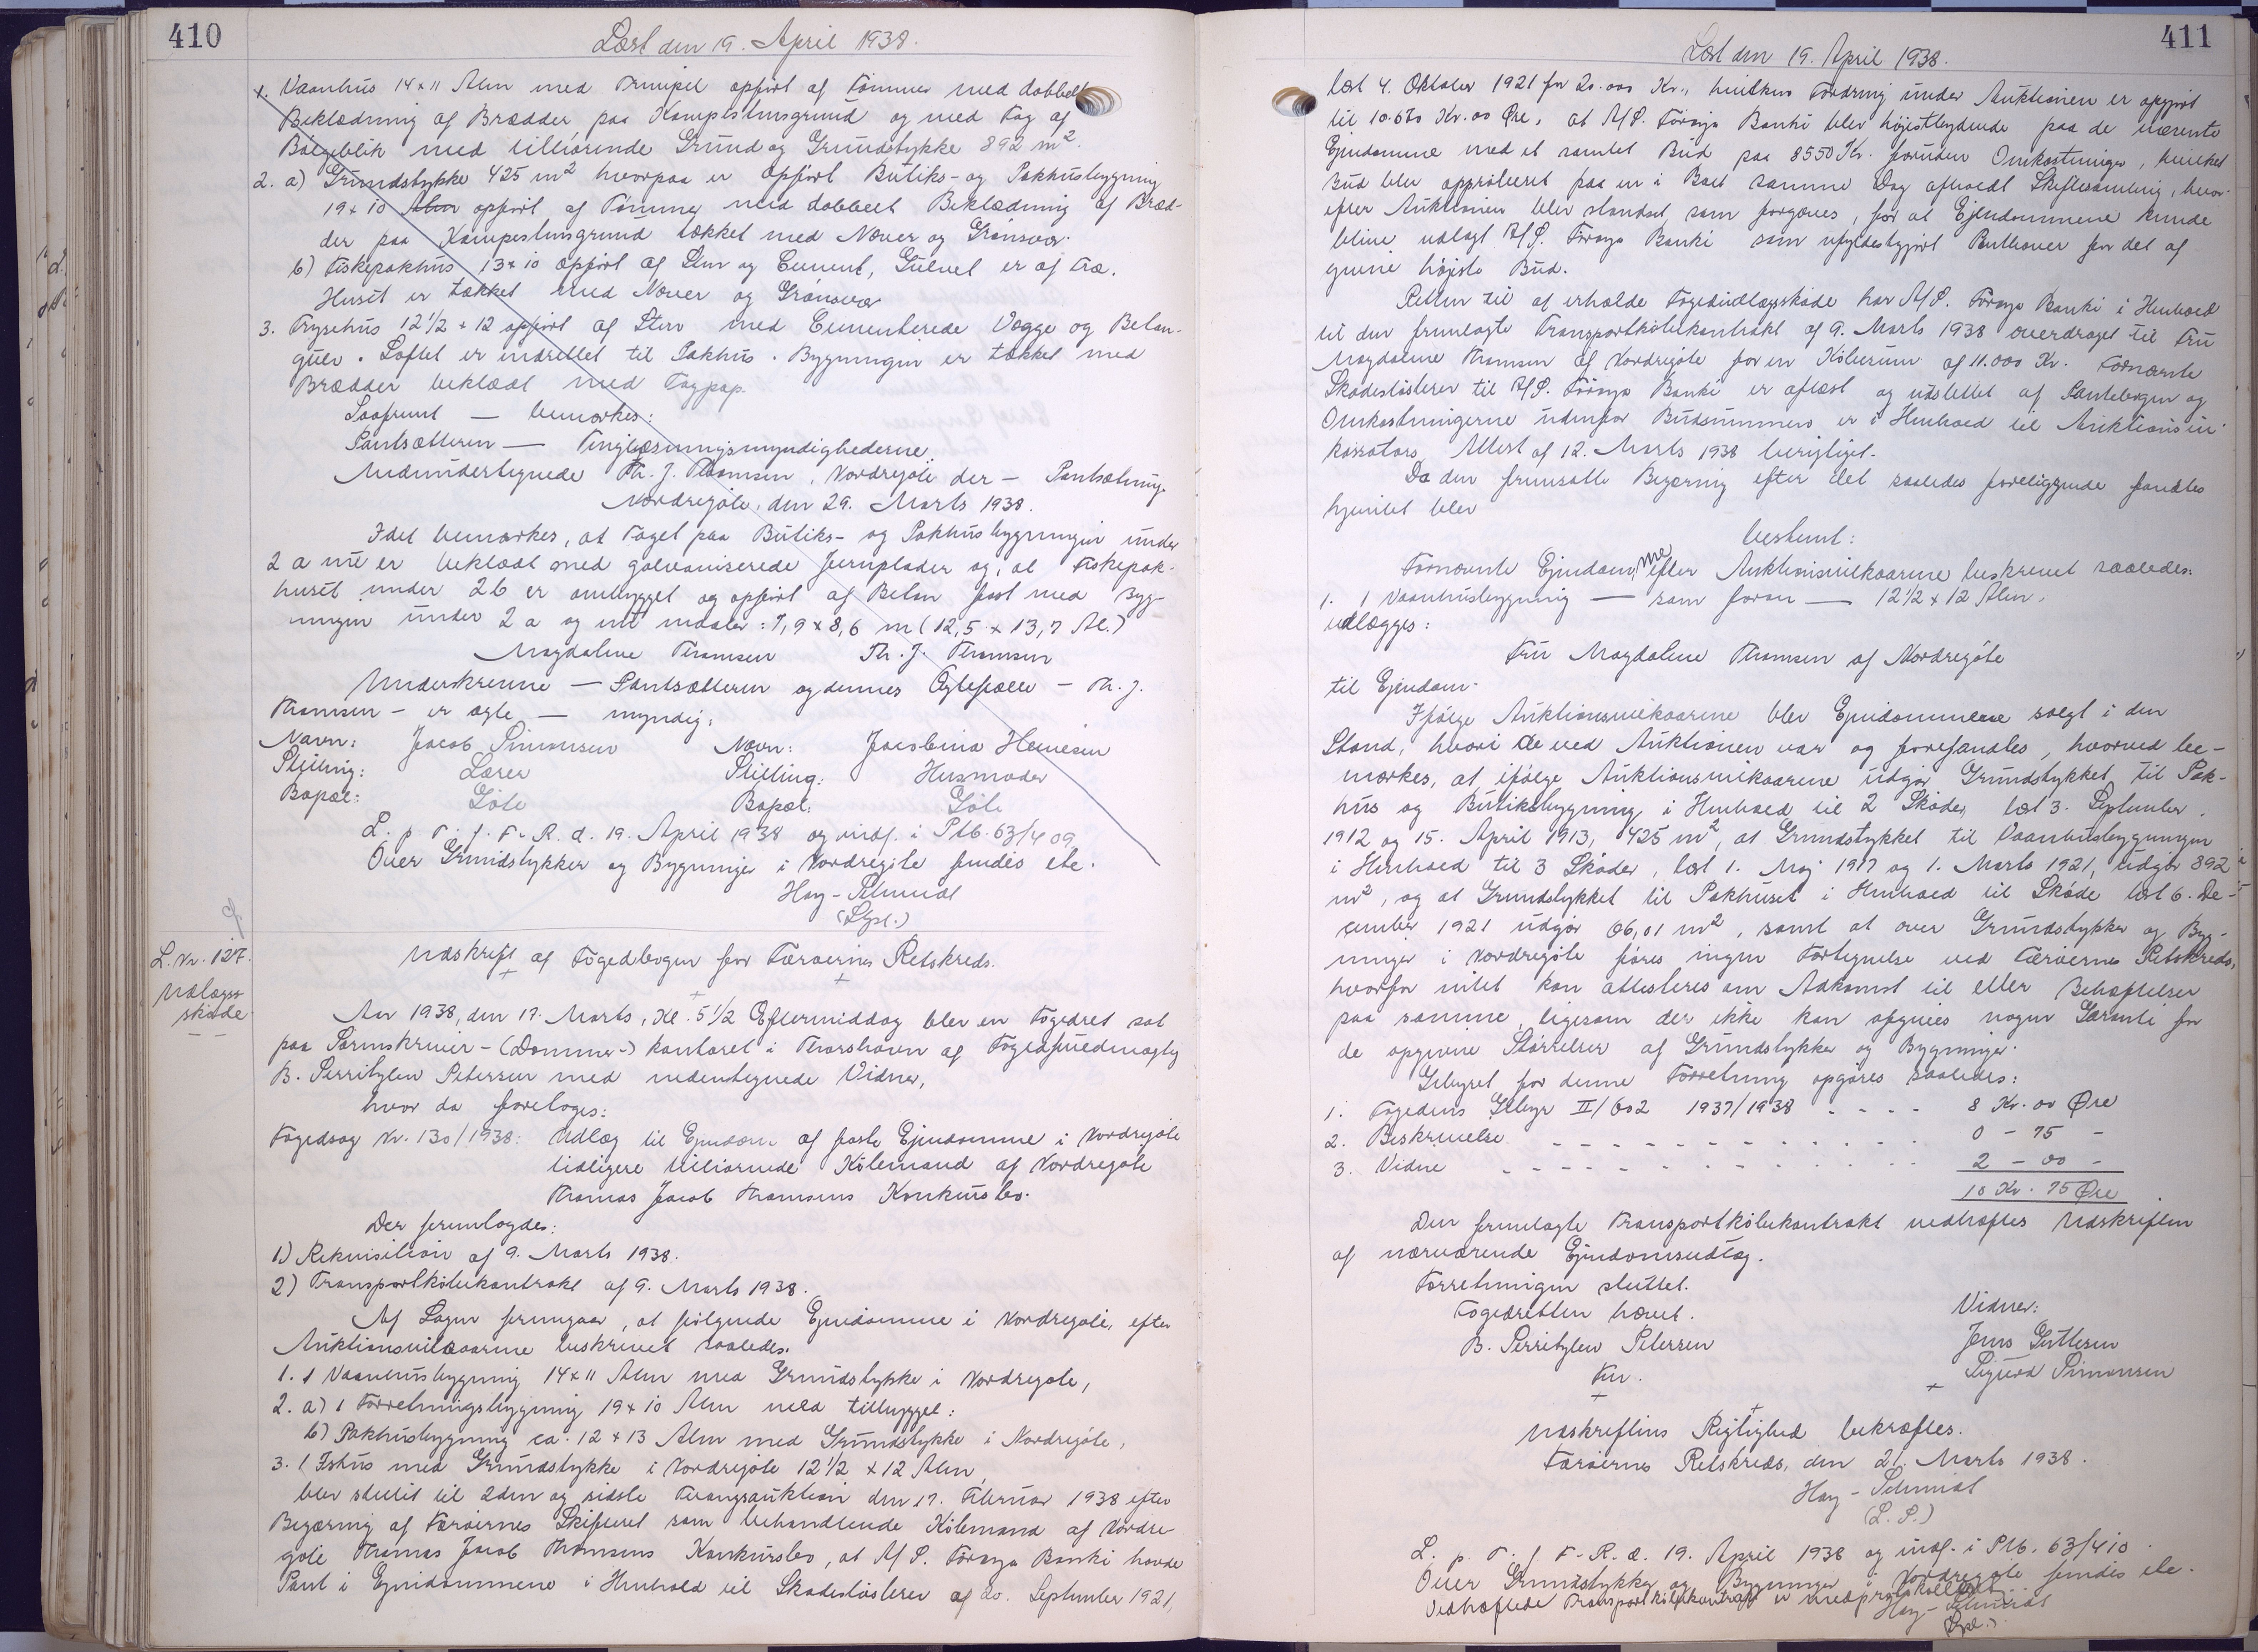 410
Læst den 19. April 1938.
1. Vaanhus 14 x 11 Alen med Frinipel opført af Tømmer med dobbelt
Beklædning af Brædder paa Kampestensgrund og med Tag af
Bølgeblik med tilhørende Grund og Grundstykke 892 m².
2. a) Grundstykke 425 m² hvorpaa er opført Butiks- og Pakhusbygning
19 x 10 Alen opført af Tømmer med dobbelt Beklædning af Bræd-
der paa Kampestensgrund tækket med Næver og Grønsvær.
b) Fiskepakhus 13 x 10 opført af Sten og Cement, Gulvet er af Træ.
Huset er tækket med Næver og Grønsvær
3. Frysehus 12½ x 12 opført af Sten med Cementerede Vægge og Beton-
gulv. Loftet er indrettet til Pakhus. Bygningen er tækket med
Brædder beklædt med Tagpap.
Saafremt — bemærkes:
Pantsætteren — Tinglæsningsmyndighederne.
Medundertegnede Th. J. Thomsen, Nordregøte der — Pantsætning
Nordregøte, den 29. Marts 1938.
Idet bemærkes, at Taget paa Butiks- og Pakhusbygningen under
2 a nu er beklædt med galvaniserede Jernplader og, at Fiskepak-
huset under 2 b er ombygget og opført af Beton fast med Byg-
ningen under 2 a og nu maaler: 7,9 x 8,6 m (12,5 x 13,7 Al.)
Magdalene Thomsen Th. J. Thomsen
Underskrevne — Pantsætteren og dennes Ægtefælle — Th. J.
Thomsen — er ægte — myndig:
Navn: Jacob Simonsen Navn: Jacobina Heinesen
Stilling: Lærer Stilling: Husmoder
Bopæl: Göte Bopæl: Göte
L. p. T. f. F. R. d. 19. April 1938 og indf. i Ptb. 63/409
Over Grundstykker og Bygninger i Nordregöte findes etc.
Hay-Schmidt
(Spl.)
L. Nr. 127.
Udlægs-
skøde
Udskrift af Fogedbogen for Færøernes Retskreds.
Aar 1938, den 17. Marts, Kl. 5½ Eftermiddag blev en Fogedret sat
paa Sorenskriver- (Dommer-) kontoret i Thorshavn af Fogedfuldmægtig
B. Serritzlew Petersen med nedentegnede Vidner,
hvor da foretoges:
Fogedsag Nr. 130/1938: Udlæg til Ejendom af faste Ejendomme i Nordregöte
tidligere tilhørende Købmand af Nordregöte
Thomas Jacob Thomsens Konkursbo.
Der fremlagdes:
1) Rekvisition af 9. Marts 1938.
2) Transportkøbekontrakt af 9. Marts 1938.
Af Sagen fremgaar, at følgende Ejendomme i Nordregöte, efter
Auktionsvilkaarene beskrevet saaledes.
1. 1 Vaanhusbygning 14 x 11 Alen med Grundstykke i Nordregøte,
2. a) 1 Forretningsbygning 19 x 10 Alen med tilbygget:
b) Pakhusbygning ca. 12 x 13 Alen med Grundstykke i Nordregöte,
3. 1 Ishus med Grundstykke i Nordregöte 12½ x 12 Alen,
blev stillet til 2den og sidste Tvangsauktion den 17. Februar 1938 efter
Begæring af Færøernes Skifteret som behandlende Købmand af Nordre-
göte Thomas Jacob Thomsens Konkursbo, at A/S. Føroya Banki havde
Pant i Ejendommene i Henhold til Skadesløsbrev af 20. September 1921,
411
Læst den 19. April 1938.
læst 4. Oktober 1921 for 20.000 Kr., hvilken Fordring under Auktionen er opgjort
til 10.670 Kr. 00 Øre, at A/S. Føroya Banki blev højestbydende paa de nævnte
Ejendomme med et samlet Bud paa 8550 Kr. foruden Omkostninger, hvilket
Bud blev approberet paa en i Boet samme Dag afholdt Skiftesamling, hvor-
efter Auktionen blev standset som forgæves, for at Ejendommene kunde
blive udlagt A/S. Føroya Banki som ufyldestgjort Panthaver for det af-
givne højeste Bud.
Retten til at erholde Fogedudlægsskøde har A/S. Føroya Banki i Henhold
til den fremlagte Transportkøbekontrakt af 9. Marts 1938 overdraget til Fru
Magdalene Thomsen af Nordregöte for en Købesum af 11.000 Kr. Fornævnte
Skadesløsbrev til A/S. Föroya Banki er aflæst og udslettet af Pantebogen og
Omkostningerne udenfor Budsummen er i Henhold til Auktionsin-
kassators Attest af 12. Marts 1938 berigtiget.
Da den fremsatte Begæring efter det saaledes foreliggende fandtes
hjemlet blev
bestemt:
Fornævnte Ejendommene efter Auktionsvilkaarene beskrevet saaledes:
1. 1 Vaanhusbygning — som foran — 12½ x 12 Alen,
udlægges:
Fru Magdalene Thomsen af Nordregöte
til Ejendom.
Ifølge Auktionsvilkaarene blev Ejendommene solgt i den
Stand, hvori de ved Auktionen var og forefandtes, hvorved be-
mærkes, at ifølge Auktionsvilkaarene udgør Grundstykket til Pak-
hus og Butiksbygning i Henhold til 2 Skøder, læst 3. September
1912 og 15. April 1913, 425 m², at Grundstykket til Vaanhusbygningen
i Henhold til 3 Skøder, læst 1. Maj 1917 og 1. Marts 1921, udgør 892
m², og at Grundstykket til Pakhuset i Henhold til Skøde læst 6. De-
cember 1921 udgør 66,01 m², samt at over Grundstykker og Byg-
ninger i Nordregöte føres ingen Fortegnelse ved Færøernes Retskreds,
hvorfor intet kan attesteres om Adkomst til eller Behæftelser
paa samme, ligesom der ikke kan afgives nogen Garanti for
de opgivne Størrelser af Grundstykker og Bygninger.
Gebyret for denne Forretning opgøres saaledes:
1. Fogedens Gebyr II/602 1937/1938 - - - - 8 Kr. 00 Øre
2. Beskrivelse - - - - - - - - - - - - 0 - 75 -
3. Vidne - - - - - - - - - - - - - 2 - 00 -
10 Kr. 75 Øre
Den fremlagte Transportkøbekontrakt vedhæftes Udskriften
af nærværende Ejendomsudlæg.
Forretningen sluttet.
Fogedretten hævet. Vidner:
B. Serritzlew Petersen Jens Guttesen
Fm. Sigurd Simonsen
Udskriftens Rigtighed bekræftes.
Færøernes Retskreds, den 21. Marts 1938.
Hay-Schmidt
(L. S.)
L. p. T. f. F. R. d. 19. April 1938 og indf. i Ptb. 63/410.
Over Grundstykker og Bygninger i Nordregöte findes etc.
Vedhæftede Transportkøbekontrakt er medprotokolleret.
Hay-Schmidt
(Spl.)